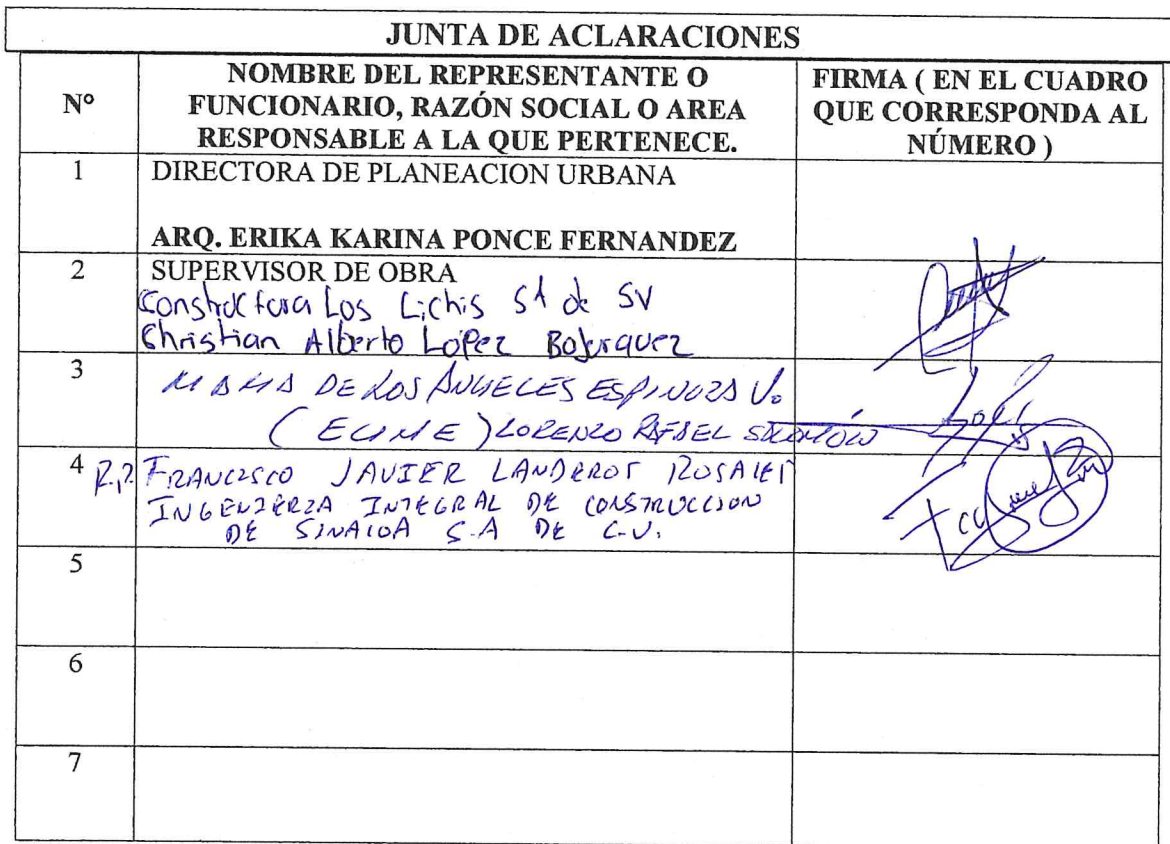 JUNTA DE ACLARACIONES
Nº
NOMBRE DEL REPRESENTANTE O
FUNCIONARIO, RAZÓN SOCIAL O AREA
RESPONSABLE A LA QUE PERTENECE.
FIRMA ( EN EL CUADRO
QUE CORRESPONDA AL
NÚMERO )
1
DIRECTORA DE PLANEACION URBANA
ARQ. ERIKA KARINA PONCE FERNANDEZ
2
SUPERVISOR DE OBRA
Constructora Los Lichis SA de SV
Christian Alberto López Bojorquez
3
DE LOS ÁNGELES ESPINOZA V.
LORENZO RAFAEL
4
FRANCISCO JAVIER LANDEROS ROSALES
INGENIERIA INTEGRAL DE CONSTRUCCION
DE SINALOA S.A DE C.V.
5
6
7